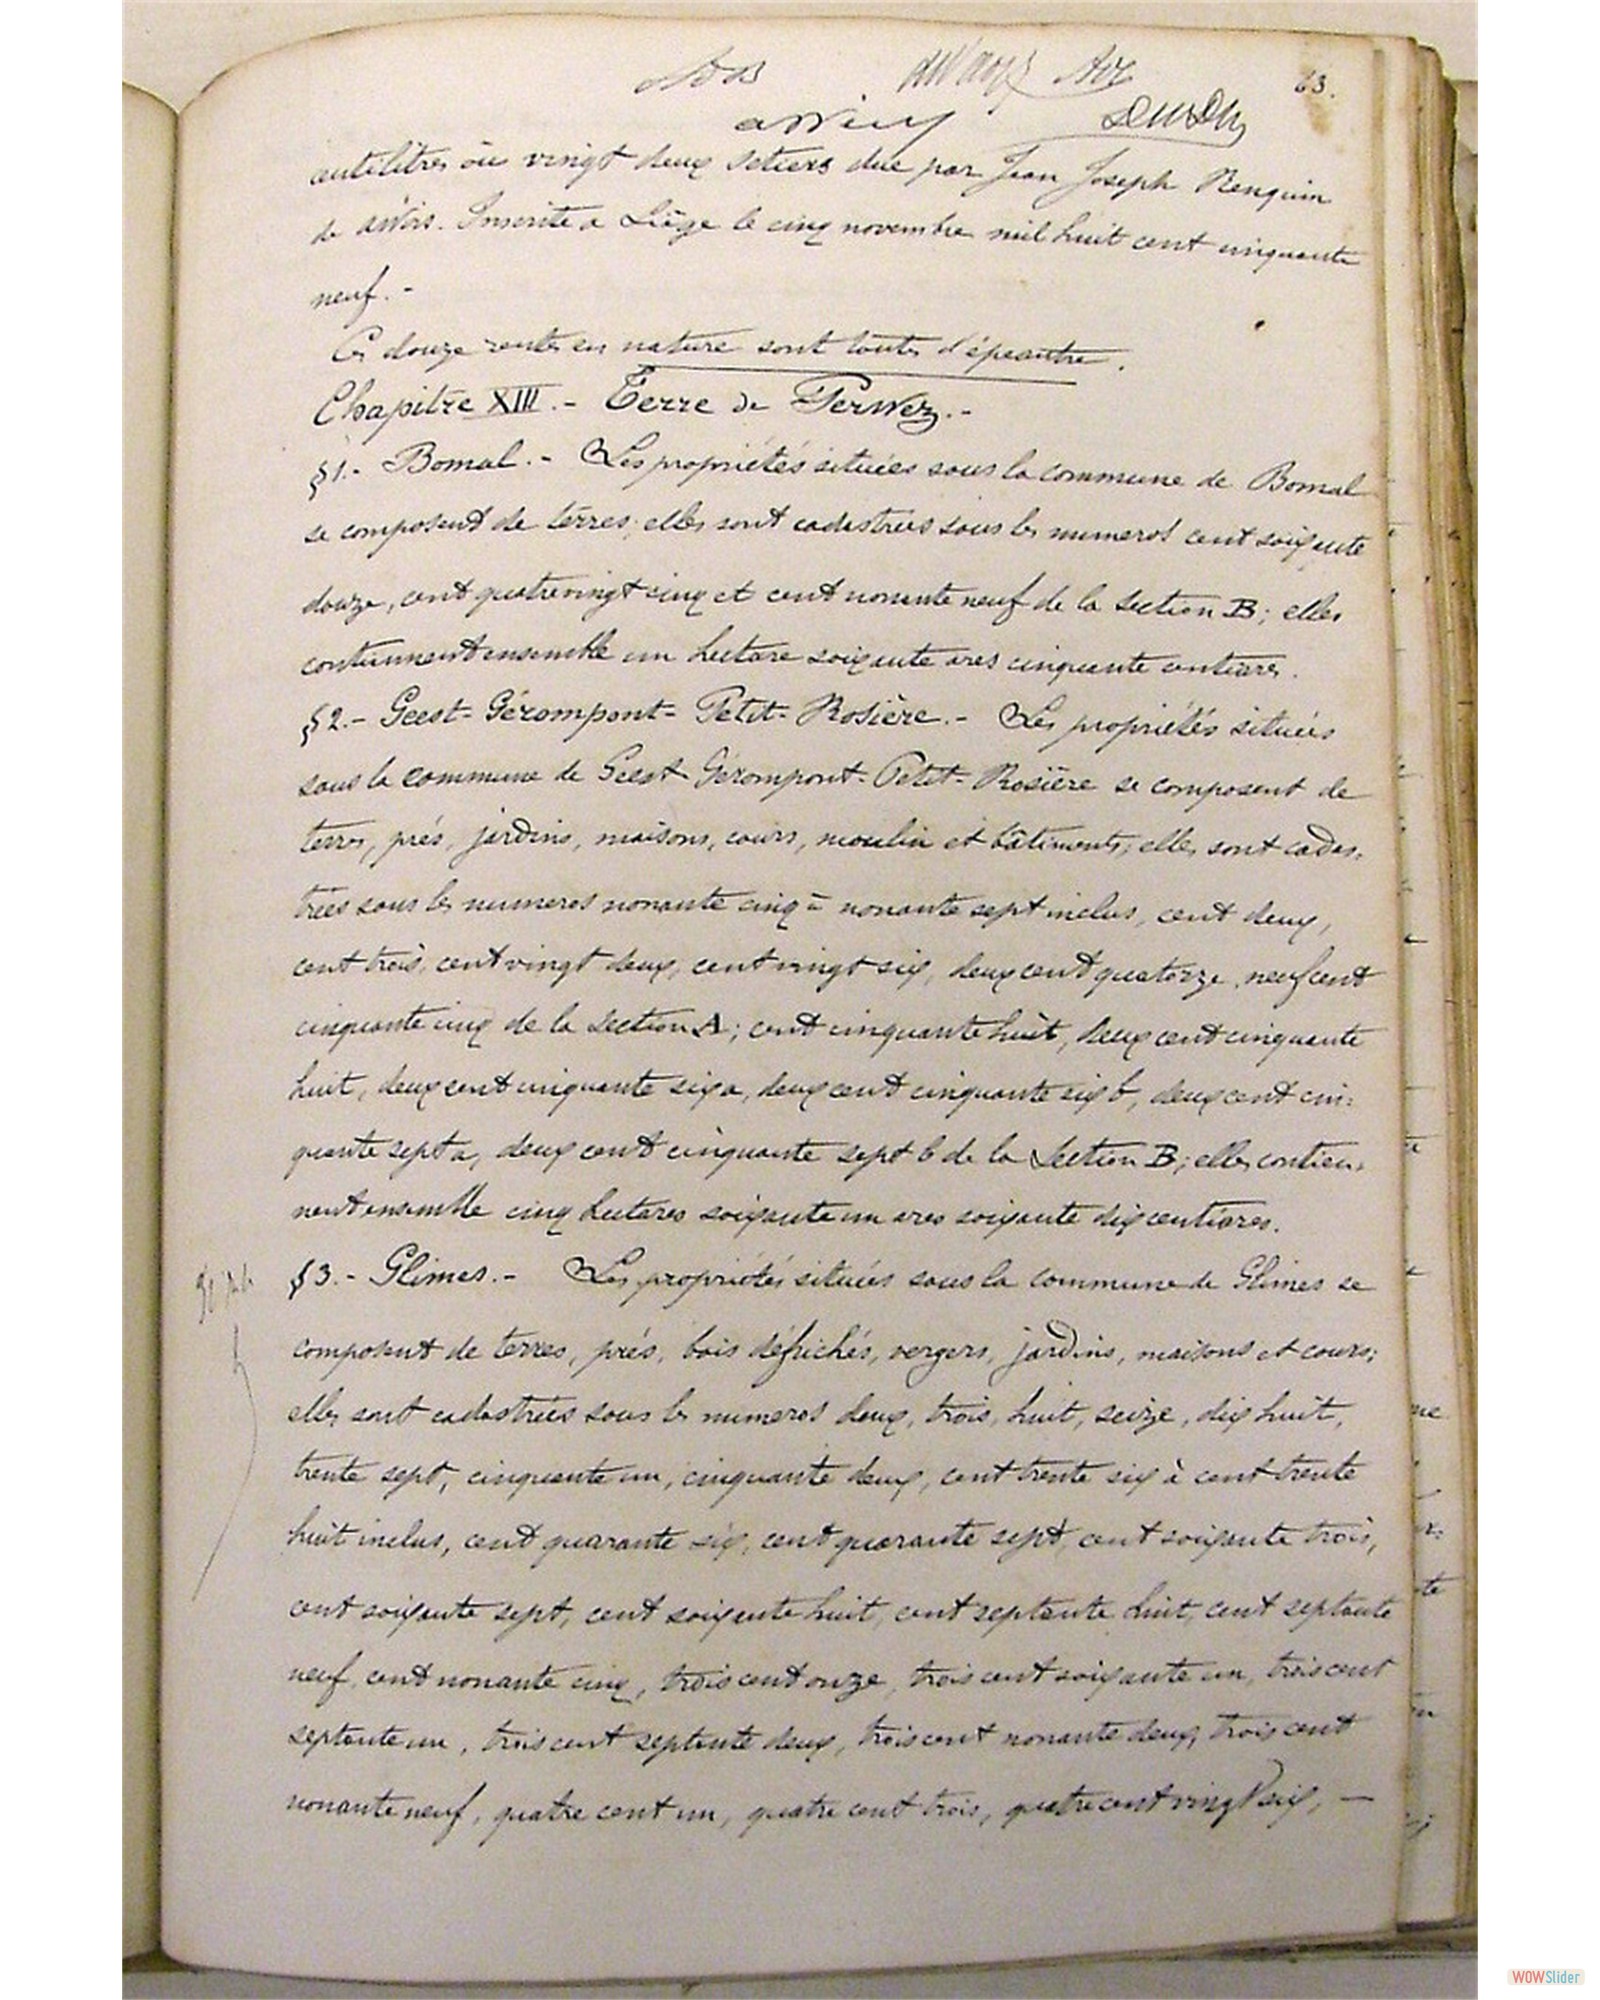 63.
centilitres ou vingt deux setiers due par Jean Joseph Renquin
de Inscrite a Liège le cinq novembre mil huit cent cinquante
neuf. -
Ces douze rentes en nature sont toutes d'épeautre.
Chapitre XIII. - Terre de Perwez. -
§1. - Bomal. - Les propriétés situées sous la commune de Bomal
se composent de terres; elles sont cadastrées sous les numeros cent soixante
douze, cent quatrevingt cinq et cent nonante neuf de la Section B; elles
contiennent ensemble un hectare soixante ares cinquante centiares.
§2. - Geest-Gérompont-Petit-Rosière. - Les propriétés situées
sous la commune de Geest-Gérompont-Petit-Rosière se composent de
terres, prés, jardins, maisons, cours, moulin et bâtiments; elles sont cadas-
trées sous les numeros nonante cinq à nonante sept inclus, cent deux,
cent trois, cent vingt deux, cent vingt six, deux cent quatorze, neuf cent
cinquante cinq de la Section A; cent cinquante huit, deux cent cinquante
huit, deux cent cinquante six a, deux cent cinquante six b, deux cent cin-
quante sept a, deux cent cinquante sept b de la Section B; elles contien-
nent ensemble cinq hectares soixante un ares soixante dix centiares.
§3. - Glimes. - Les propriétés situées sous la commune de Glimes se
composent de terres, prés, bois défrichés, vergers, jardins, maisons et cours;
elles sont cadastrées sous les numeros deux, trois, huit, seize, dix huit,
trente sept, cinquante un, cinquante deux, cent trente six à cent trente
huit inclus, cent quarante six, cent quarante sept, cent soixante trois,
cent soixante sept, cent soixante huit, cent septante huit, cent septante
neuf, cent nonante cinq, trois cent onze, trois cent soixante un, trois cent
septante un, trois cent septante deux, trois cent nonante deux, trois cent
nonante neuf, quatre cent un, quatre cent trois, quatre cent vingt six, —
WOWSlider